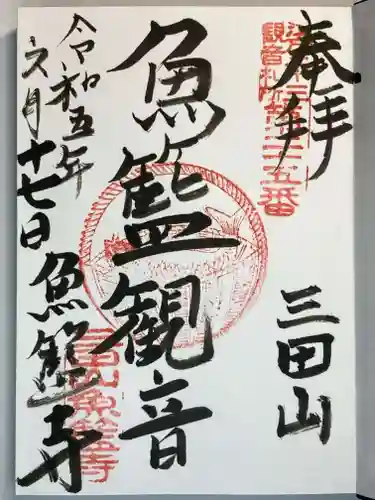 奉拝
三田山
魚籃観音
令和五年
六月十七日
魚籃寺
江戸三十三
観音札所
第二十五番
三田山魚籃寺